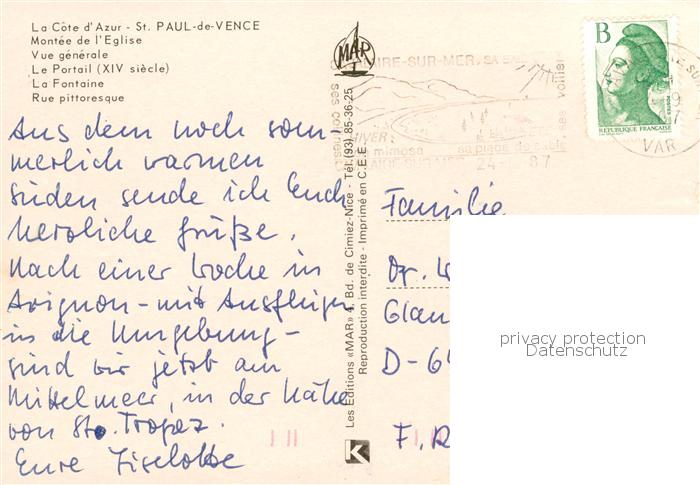 La Côte d'Azur - St. PAUL-de-VENCE
Montée de l'Eglise
Vue générale
Le Portail (XIV siècle)
La Fontaine
Rue pittoresque
Aus dem noch som-
merlich warmen
Süden sende ich Euch
herzliche Grüße.
Nach einer Woche in
Avignon - mit Ausflügen
in die Umgebung -
sind wir jetzt am
Mittelmeer, in der Nähe
von Sto. Tropez.
Eure Liselotte
MAR
Les Editions «MAR» 4, Bd. de Cimiez-Nice - Tél. (93) 85-36-25
Reproduction interdite - Imprimé en C.E.E.
K
-SUR-MER, SA BA
HIVER
mimosa
sa plage de sable
24- 87
VAR
B
REPUBLIQUE FRANÇAISE
Familie
Dr.
Glau
D-6
F. R
privacy protection
Datenschutz